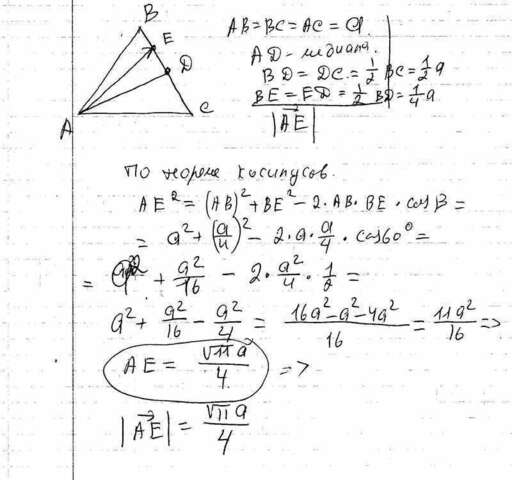 B
E
D
A
C
AB = BC = AC = a.
AD - медиана.
BD = DC = 1/2 BC = 1/2 a
BE = ED = 1/2 BD = 1/4 a
|AE|
По теореме косинусов.
AE² = (AB)² + BE² - 2·AB·BE·cosB =
= a² + (a/4)² - 2·a·a/4·cos60° =
= a² + a²/16 - 2·a²/4·1/2 =
a² + a²/16 - a²/4 = (16a² - a² - 4a²)/16 = 11a²/16 =>
AE = √11 a/4 =>
|AE| = √11 a/4